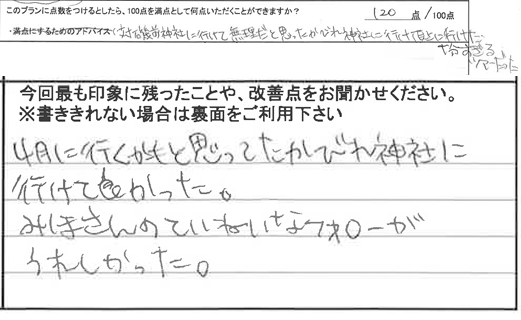 このプランに点数をつけるとしたら、100点を満点として何点いただくことができますか? 120 点/100点
・満点にするためのアドバイス( 神社に行けて無理だと思ったかびれ神社に行け頂上に行けた
十分すぎる
ツアーだった
今回最も印象に残ったことや、改善点をお聞かせください。
※書ききれない場合は裏面をご利用下さい
4月に行くかもと思ってたかびれ神社に
行けて良かった。
みほさんのていねいなフォローが
うれしかった。